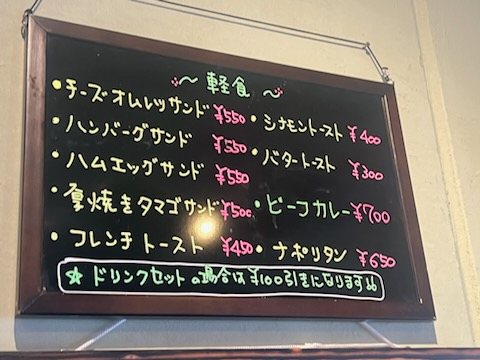 ～軽食～
・チーズオムレツサンド ¥550
・ハンバーグサンド ¥550
・ハムエッグサンド ¥550
・厚焼きタマゴサンド ¥500
・フレンチトースト ¥450
・シナモントースト ¥400
・バタートースト ¥300
・ビーフカレー ¥700
・ナポリタン ¥650
☆ドリンクセットの場合は¥100引きになります